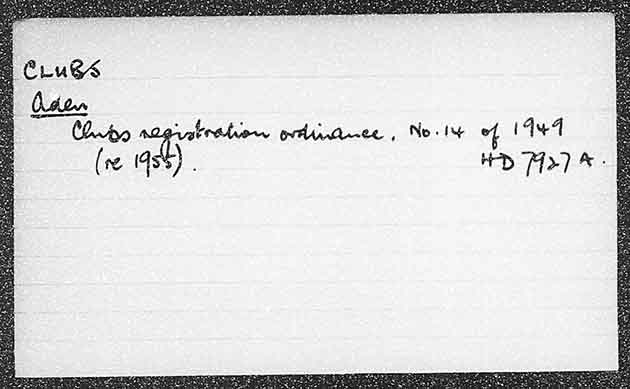 CLUBS
Aden
Clubs registration ordinance. No. 14 of 1949
(re 1955). HD 7927 A.